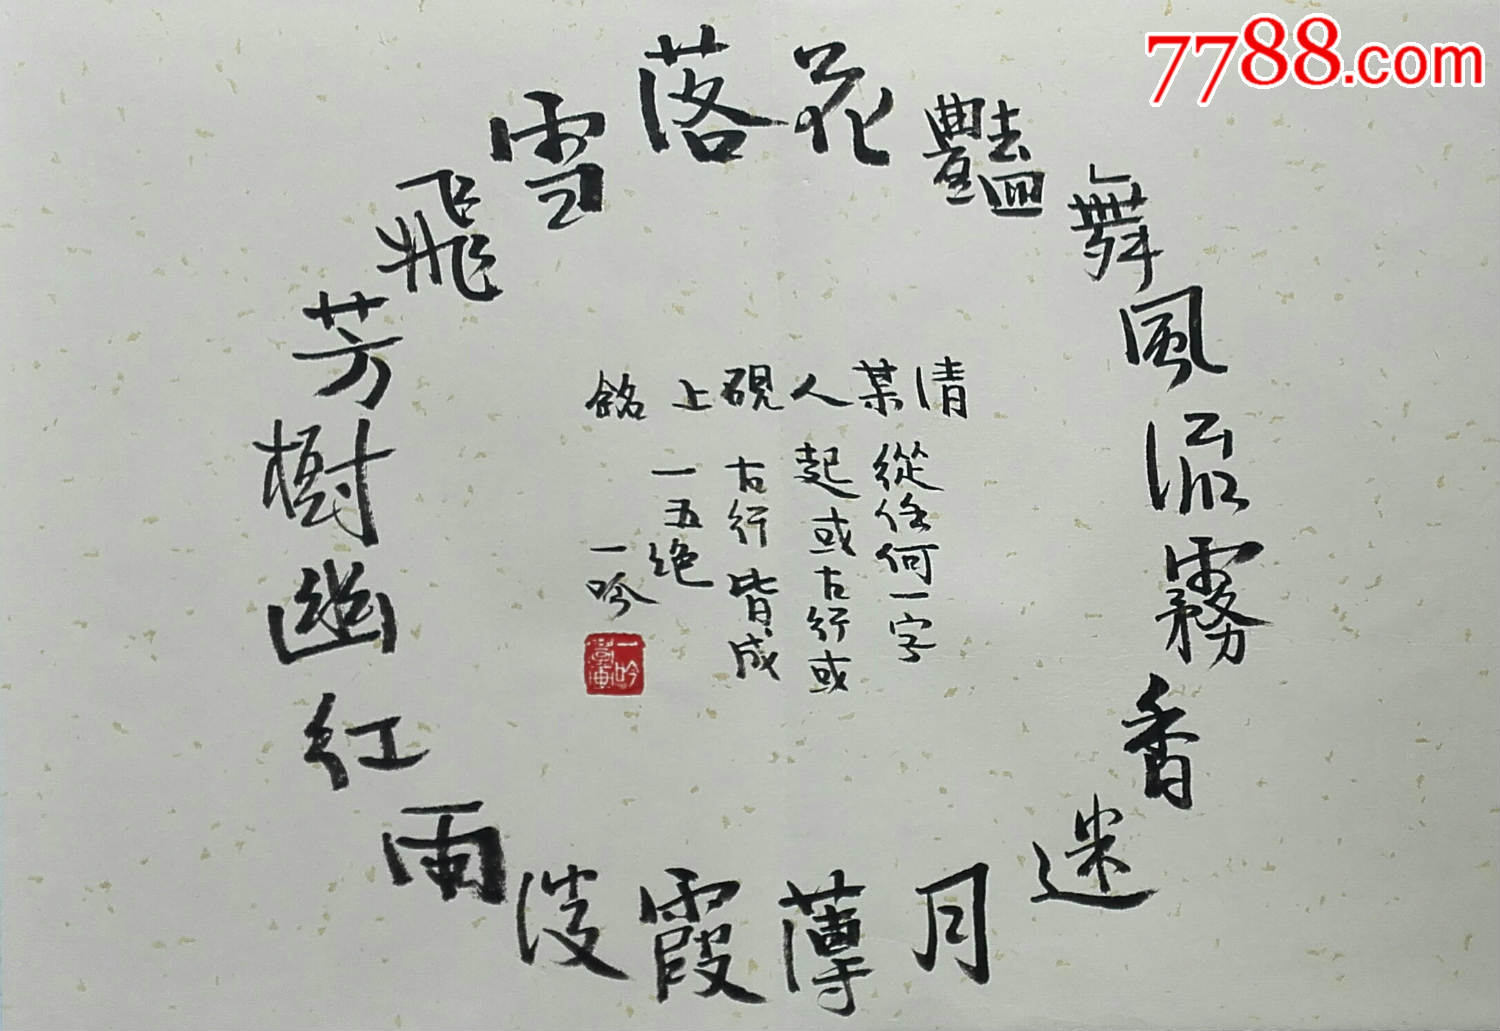 7788.com
落花豔舞風流霧香迷月薄霞淡雨紅幽樹芳飛雪
清某人硯上銘
從任何一字
起或左行或
右行皆成
一五绝
一吟
一吟